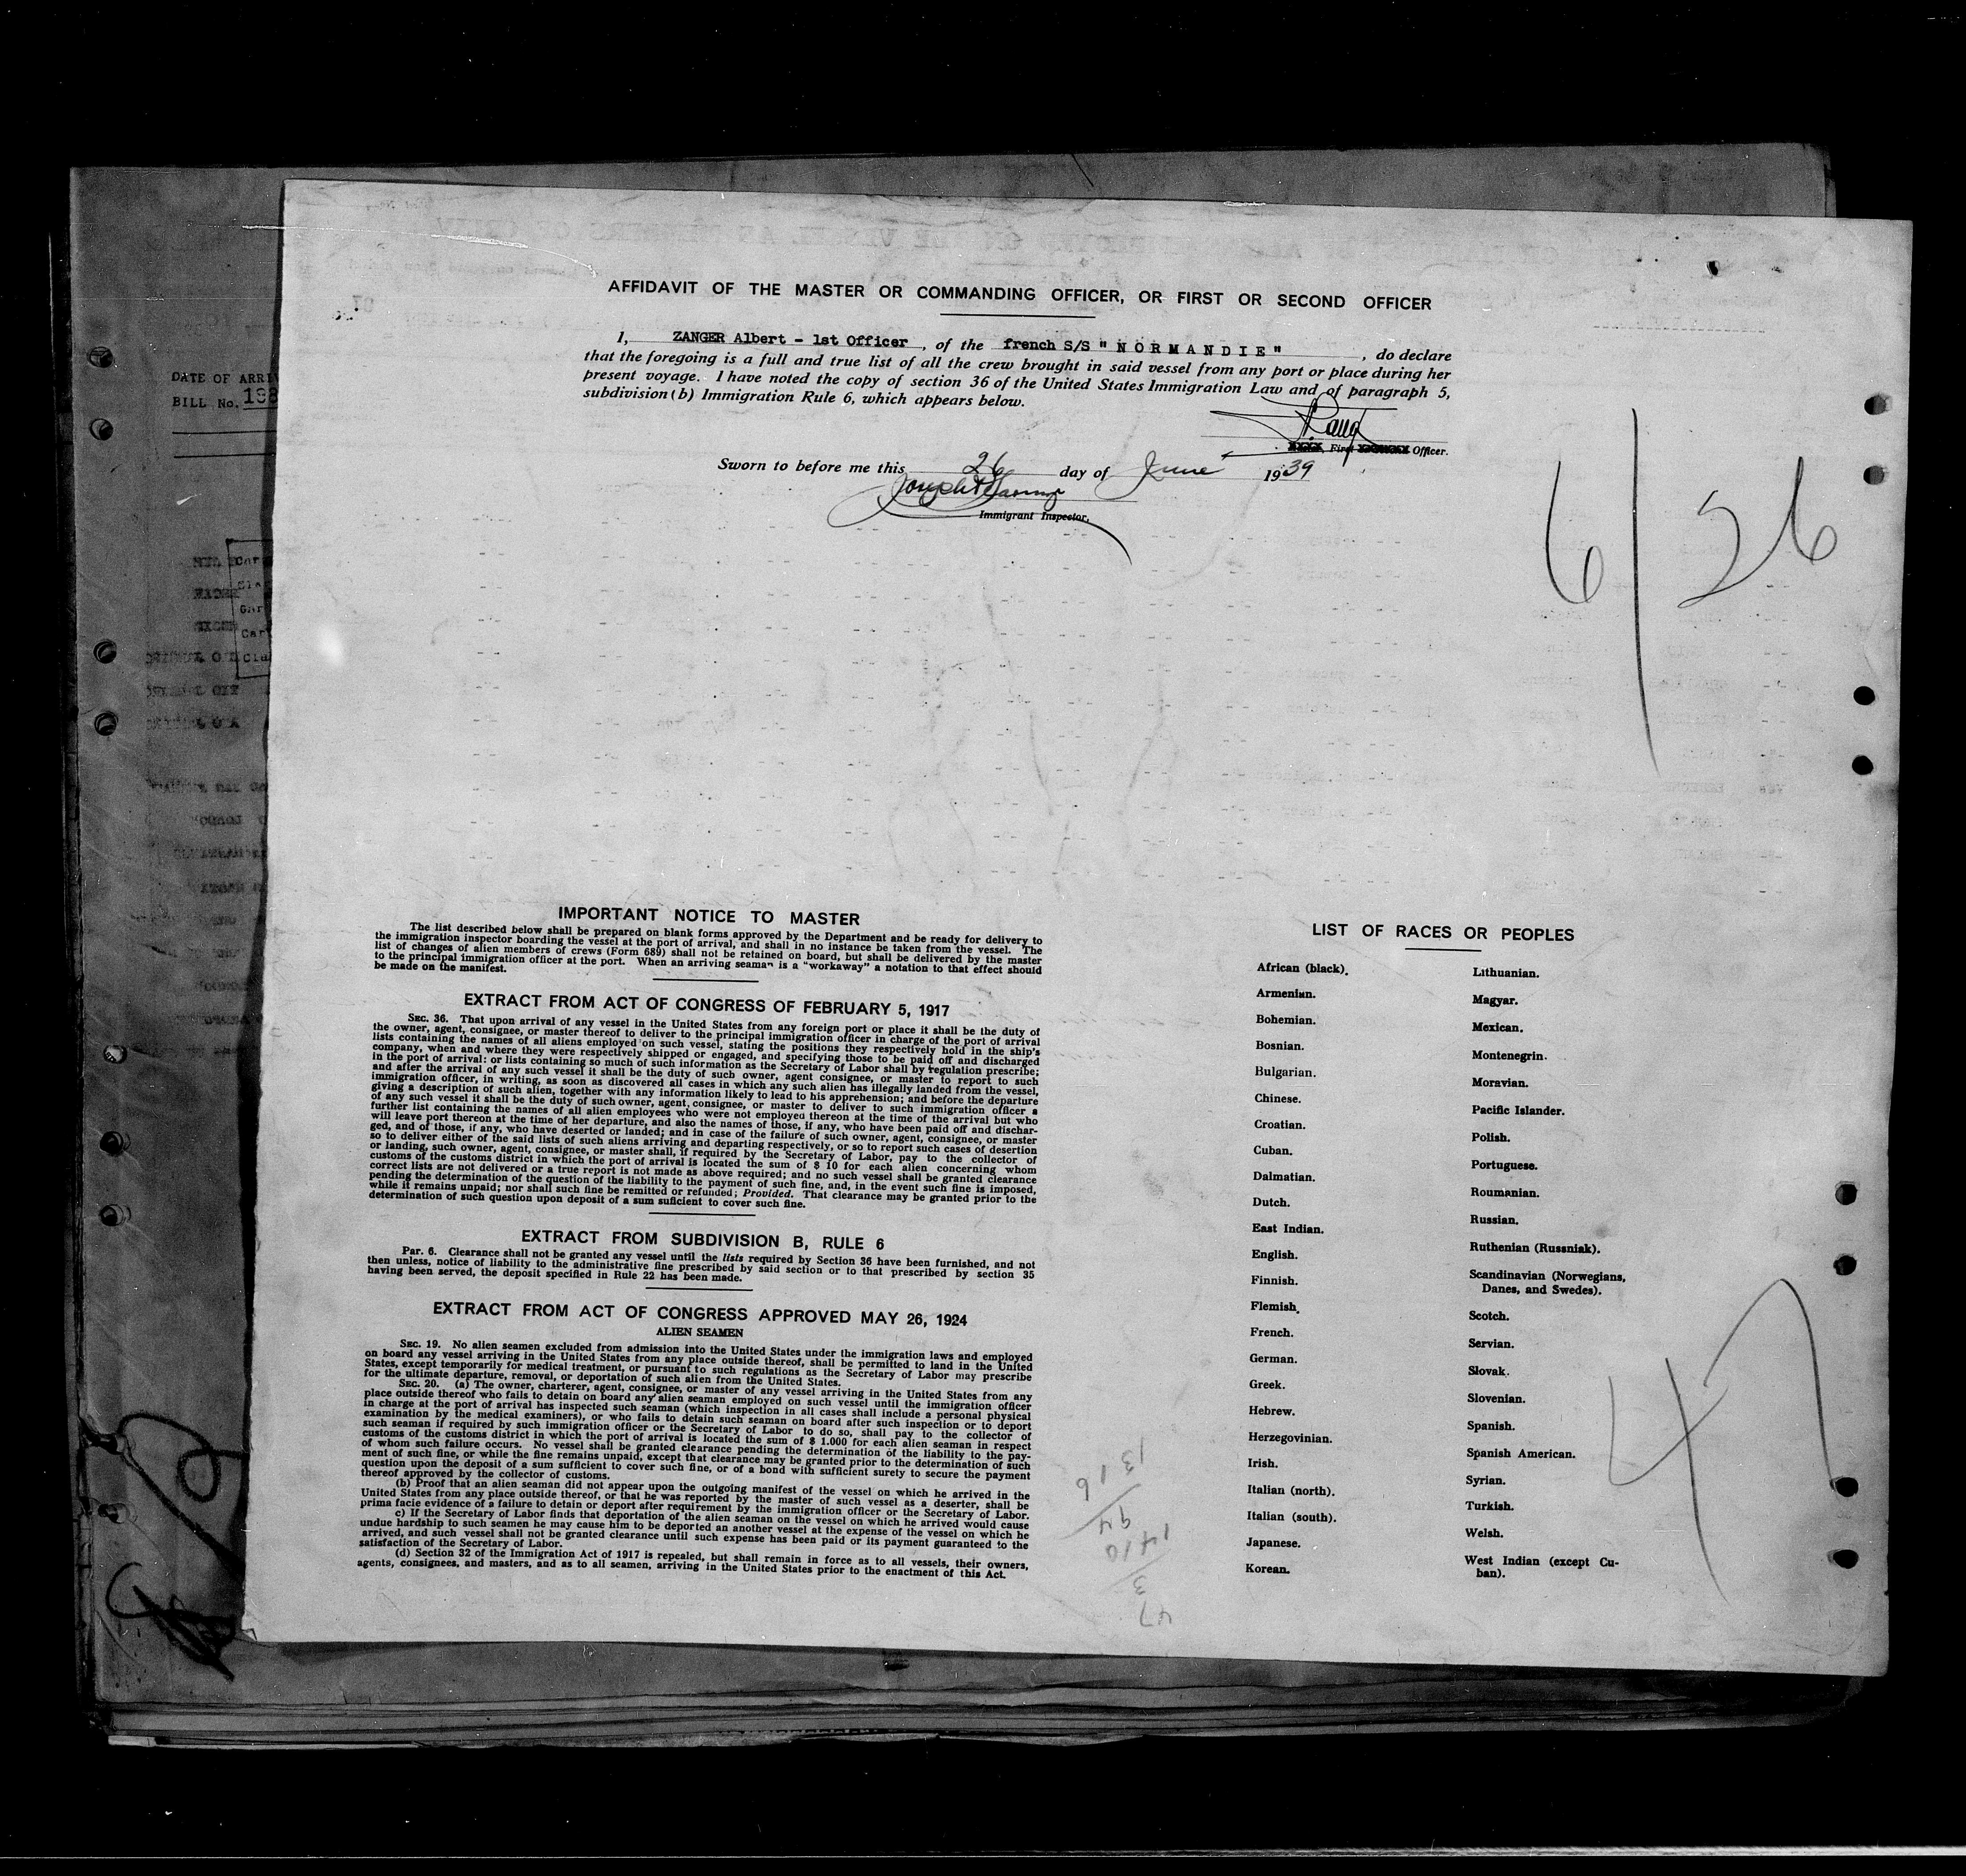 AFFIDAVIT OF THE MASTER OR COMMANDING OFFICER, OR FIRST OR SECOND OFFICER
I, ZANGER Albert - 1st Officer, of the french S/S "NORMANDIE", do declare
that the foregoing is a full and true list of all the crew brought in said vessel from any port or place during her
present voyage. I have noted the copy of section 36 of the United States Immigration Law and of paragraph 5,
subdivision (b) Immigration Rule 6, which appears below.
First Officer.
Sworn to before me this 26 day of June 1939
Immigrant Inspector.
6/26
DATE OF ARRI
BILL No. 198
IMPORTANT NOTICE TO MASTER
The list described below shall be prepared on blank forms approved by the Department and be ready for delivery to
the immigration inspector boarding the vessel at the port of arrival, and shall in no instance be taken from the vessel. The
list of changes of alien members of crews (Form 689) shall not be retained on board, but shall be delivered by the master
to the principal immigration officer at the port. When an arriving seaman is a "workaway" a notation to that effect should
be made on the manifest.
EXTRACT FROM ACT OF CONGRESS OF FEBRUARY 5, 1917
SEC. 36. That upon arrival of any vessel in the United States from any foreign port or place it shall be the duty of
the owner, agent, consignee, or master thereof to deliver to the principal immigration officer in charge of the port of arrival
lists containing the names of all aliens employed on such vessel, stating the positions they respectively hold in the ship's
company, when and where they were respectively shipped or engaged, and specifying those to be paid off and discharged
in the port of arrival: or lists containing so much of such information as the Secretary of Labor shall by regulation prescribe;
and after the arrival of any such vessel it shall be the duty of such owner, agent consignee, or master to report to such
immigration officer, in writing, as soon as discovered all cases in which any such alien has illegally landed from the vessel,
giving a description of such alien, together with any information likely to lead to his apprehension; and before the departure
of any such vessel it shall be the duty of such owner, agent, consignee, or master to deliver to such immigration officer a
further list containing the names of all alien employees who were not employed thereon at the time of the arrival but who
will leave port thereon at the time of her departure, and also the names of those, if any, who have been paid off and dischar-
ged, and of those, if any, who have deserted or landed; and in case of the failure of such owner, agent, consignee, or master
so to deliver either of the said lists of such aliens arriving and departing respectively, or so to report such cases of desertion
or landing, such owner, agent, consignee, or master shall, if required by the Secretary of Labor, pay to the collector of
customs of the customs district in which the port of arrival is located the sum of $ 10 for each alien concerning whom
correct lists are not delivered or a true report is not made as above required; and no such vessel shall be granted clearance
pending the determination of the question of the liability to the payment of such fine, and, in the event such fine is imposed,
while it remains unpaid; nor shall such fine be remitted or refunded; Provided. That clearance may be granted prior to the
determination of such question upon deposit of a sum suficient to cover such fine.
EXTRACT FROM SUBDIVISION B, RULE 6
Par. 6. Clearance shall not be granted any vessel until the lists required by Section 36 have been furnished, and not
then unless, notice of liability to the administrative fine prescribed by said section or to that prescribed by section 35
having been served, the deposit specified in Rule 22 has been made.
EXTRACT FROM ACT OF CONGRESS APPROVED MAY 26, 1924
ALIEN SEAMEN
SEC. 19. No alien seamen excluded from admission into the United States under the immigration laws and employed
on board any vessel arriving in the United States from any place outside thereof, shall be permitted to land in the United
States, except temporarily for medical treatment, or pursuant to such regulations as the Secretary of Labor may prescribe
for the ultimate departure, removal, or deportation of such alien from the United States.
SEC. 20. (a) The owner, charterer, agent, consignee, or master of any vessel arriving in the United States from any
place outside thereof who fails to detain on board any alien seaman employed on such vessel until the immigration officer
in charge at the port of arrival has inspected such seaman (which inspection in all cases shall include a personal physical
examination by the medical examiners), or who fails to detain such seaman on board after such inspection or to deport
such seaman if required by such immigration officer or the Secretary of Labor to do so, shall pay to the collector of
customs of the customs district in which the port of arrival is located the sum of $ 1.000 for each alien seaman in respect
of whom such failure occurs. No vessel shall be granted clearance pending the determination of the liability to the pay-
ment of such fine, or while the fine remains unpaid, except that clearance may be granted prior to the determination of such
question upon the deposit of a sum sufficient to cover such fine, or of a bond with sufficient surety to secure the payment
thereof approved by the collector of customs.
(b) Proof that an alien seaman did not appear upon the outgoing manifest of the vessel on which he arrived in the
United States from any place outside thereof, or that he was reported by the master of such vessel as a deserter, shall be
prima facie evidence of a failure to detain or deport after requirement by the immigration officer or the Secretary of Labor.
c) If the Secretary of Labor finds that deportation of the alien seaman on the vessel on which he arrived would cause
undue hardship to such seamen he may cause him to be deported an another vessel at the expense of the vessel on which he
arrived, and such vessel shall not be granted clearance until such expense has been paid or its payment guaranteed to the
satisfaction of the Secretary of Labor.
(d) Section 32 of the Immigration Act of 1917 is repealed, but shall remain in force as to all vessels, their owners,
agents, consignees, and masters, and as to all seamen, arriving in the United States prior to the enactment of this Act.
LIST OF RACES OR PEOPLES
African (black).
Armenian.
Bohemian.
Bosnian.
Bulgarian.
Chinese.
Croatian.
Cuban.
Dalmatian.
Dutch.
East Indian.
English.
Finnish.
Flemish.
French.
German.
Greek.
Hebrew.
Herzegovinian.
Irish.
Italian (north).
Italian (south).
Japanese.
Korean.
Lithuanian.
Magyar.
Mexican.
Montenegrin.
Moravian.
Pacific Islander.
Polish.
Portuguese.
Roumanian.
Russian.
Ruthenian (Russniak).
Scandinavian (Norwegians,
Danes, and Swedes).
Scotch.
Servian.
Slovak.
Slovenian.
Spanish.
Spanish American.
Syrian.
Turkish.
Welsh.
West Indian (except Cu-
ban).
47